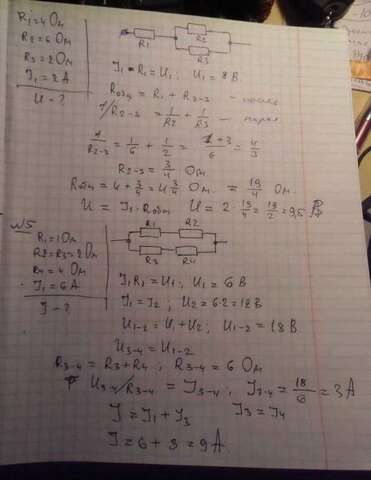 R₁=4 Ом
R₂=6 Ом
R₃=2 Ом
I₁=2 А
U - ?
R1 R2 R3
I₁·R₁=U₁; U₁=8 В
Rобщ = R₁ + R₂₋₃ - посл
1/R₂₋₃ = 1/R2 + 1/R3 - парал
1/R₂₋₃ = 1/6 + 1/2 = 1+3/6 = 4/3
R₂₋₃ = 3/4 Ом
Rобщ = 4 + 3/4 = 4 3/4 Ом = 19/4 Ом
U = I₁·Rобщ U = 2·19/4 = 19/2 = 9,5 В
№5
R₁=1 Ом
R2=R₃=2 Ом
R₄=4 Ом
I₁=6 А
I - ?
R1 R2
R3 R4
I₁R₁=U₁; U₁=6 В
I₁=I₂; U₂=6·2=18 В
U₁₋₂=U₁+U₂; U₁₋₂=18 В
U₃₋₄=U₁₋₂
R₃₋₄=R₃+R₄; R₃₋₄=6 Ом
U₃₋₄/R₃₋₄ = I₃₋₄; I₃₋₄=18/6=3 А
I=I₁+I₃ I₃=I₄
I=6+3=9 А